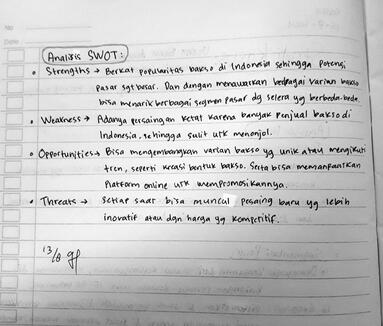 No
Date
Analisis SWOT :
• Strengths → Berkat popularitas bakso di Indonesia sehingga potensi
pasar sgt besar. Dan dengan menawarkan berbagai varian bakso
bisa menarik berbagai segmen pasar dg selera yg berbeda-beda.
• Weakness → Adanya persaingan ketat karena banyak penjual bakso di
Indonesia, sehingga sulit utk menonjol.
• Opportunities → Bisa mengembangkan varian bakso yg unik atau mengikuti
tren, seperti kreasi bentuk bakso. Serta bisa memanfaatkan
Platform online utk mempromosikannya.
• Threats → Setiap saat bisa muncul pesaing baru yg lebih
inovatif atau dgn harga yg kompetitif.
13/8